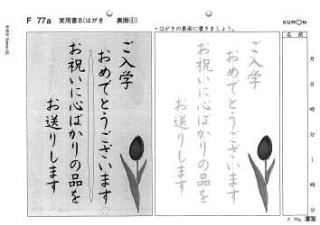 F 77a 実用書8(はがき 裏面④)
KUMON
・はがきの裏面に書きましょう。
ご入学
おめでとうございます
お祝いに心ばかりの品を
お送りします
ご入学
おめでとうございます
お祝いに心ばかりの品を
お送りします
名前
月
日
時
分
時
分
F 77a 書写